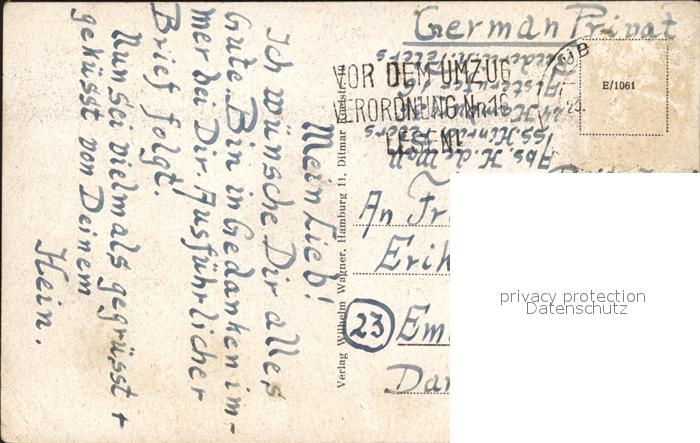 Mein Lieb!
Ich wünsche Dir alles
Gute. Bin in Gedanken im-
mer bei Dir. Ausführlicher
Brief folgt.
Nun sei vielmals gegrüsst +
geküsst von Deinem
Hein.
Verlag Wilhelm Wagner, Hamburg 11, Ditmar
German Privat
VOR DEM UMZUG
VERORDNUNG Nr. 16
LESEN!
E/1061
Abs. H. de Wall
An Fr
Erik
23 Em
Dar
privacy protection
Datenschutz